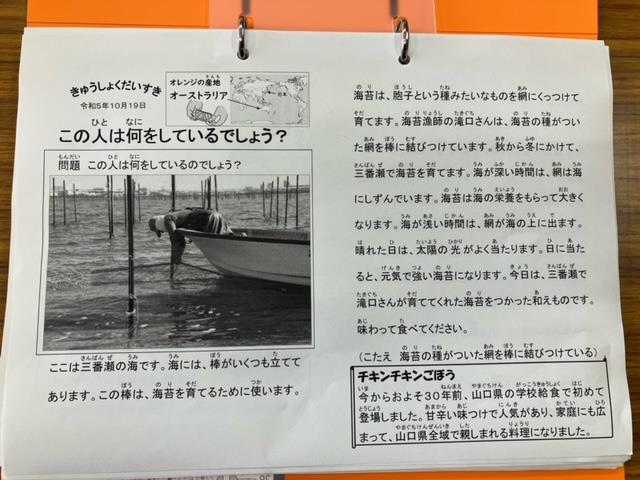 きゅうしょくだいすき
令和5年10月19日
オレンジの産地
オーストラリア
この人は何をしているでしょう？
問題　この人は何をしているのでしょう？
ここは三番瀬の海です。海には、棒がいくつも立てて
あります。この棒は、海苔を育てるために使います。
海苔は、胞子という種みたいなものを網にくっつけて
育てます。海苔漁師の滝口さんは、海苔の種がつい
た網を棒に結びつけています。秋から冬にかけて、
三番瀬で海苔を育てます。海が深い時間は、網は海
にしずんでいます。海苔は海の栄養をもらって大きく
なります。海が浅い時間は、網が海の上に出ます。
晴れた日は、太陽の光がよく当たります。日に当た
ると、元気で強い海苔になります。今日は、三番瀬で
滝口さんが育ててくれた海苔をつかった和えものです。
味わって食べてください。
（こたえ　海苔の種がついた網を棒に結びつけている）
チキンチキンごぼう
今からおよそ３０年前、山口県の学校給食で初めて
登場しました。甘辛い味つけで人気があり、家庭にも広
まって、山口県全域で親しまれる料理になりました。